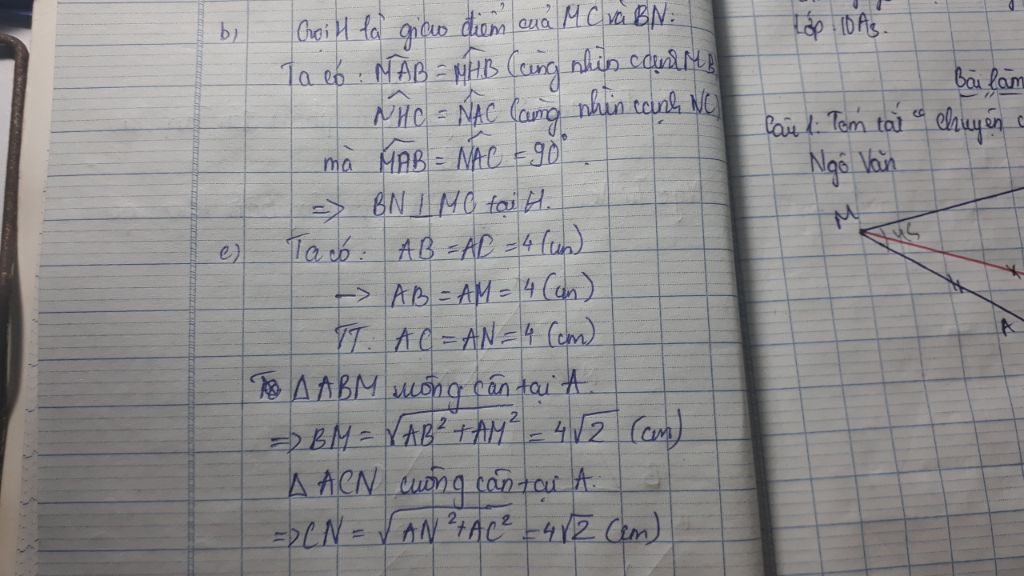 b) Gọi H là giao điểm của MC và BN.
Ta có: MAB = MHB (cùng nhìn cạnh MB
NHC = NAC (cùng nhìn cạnh NC)
mà MAB = NAC = 90°.
=> BN ⊥ MC tại H.
c) Ta có: AB = AC = 4 (cm)
-> AB = AM = 4 (cm)
TT. AC = AN = 4 (cm)
ΔABM vuông cân tại A.
=> BM = √(AB² + AM²) = 4√2 (cm)
ΔACN vuông cân tại A.
=> CN = √(AN² + AC²) = 4√2 (cm)
Lớp 10A3.
Bài làm
Câu 1: Tóm tắt " chuyện c
Ngô Văn
M
45
A